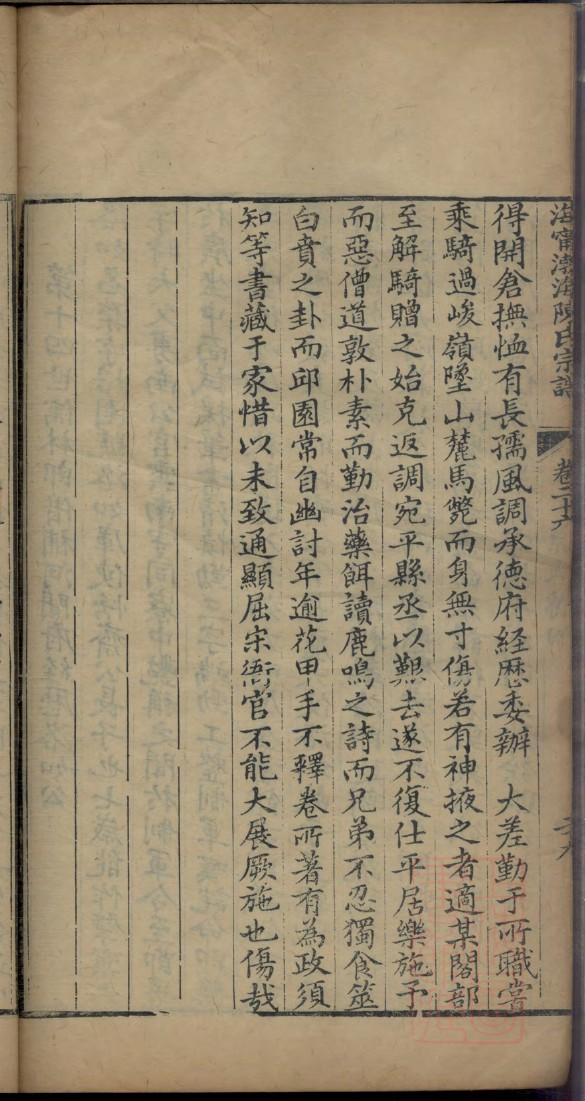 海甯渤海陳氏宗譜
卷二十六
得開倉撫恤有長孺風調承德府經歷委辦　大差勤于所職嘗
乘騎過峻嶺墜山麓馬斃而身無寸傷若有神掖之者適某閣部
至解騎贈之始克返調宛平縣丞以艱去遂不復仕平居樂施予
而惡僧道敦朴素而勤治藥餌讀鹿鳴之詩而兄弟不忍獨食筮
白賁之卦而邱園常自幽討年逾花甲手不釋卷所著有為政須
知等書藏于家惜以未致通顯屈宋衙官不能大展厥施也傷哉